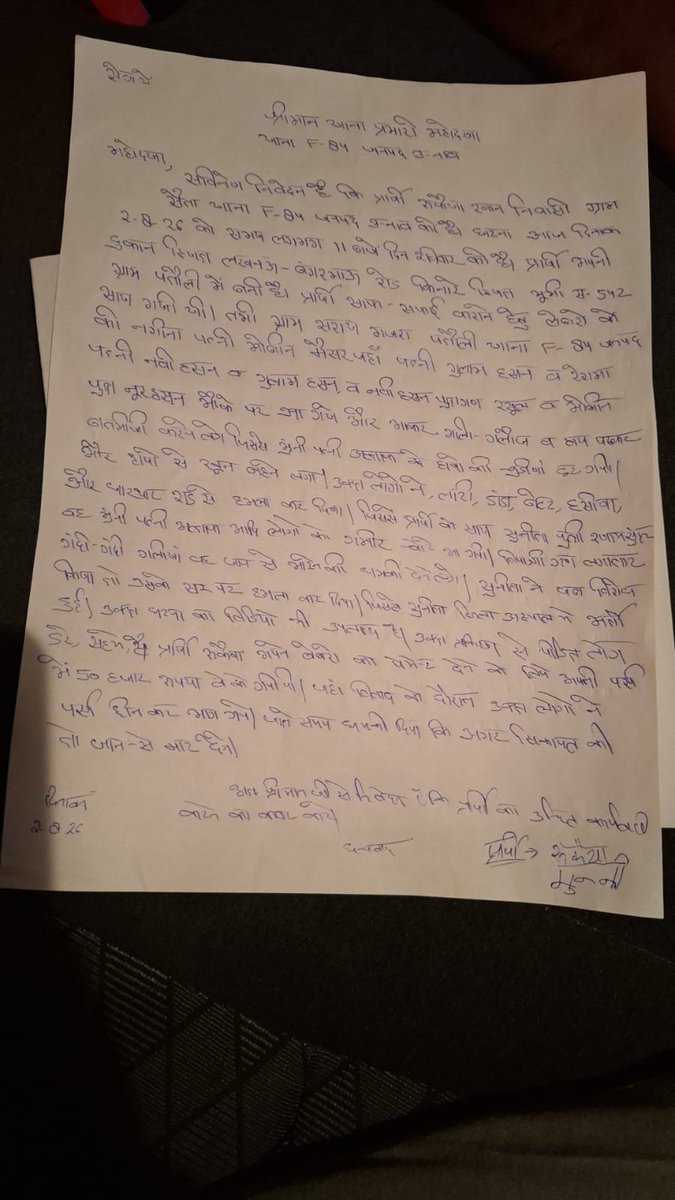 सेवा में
श्रीमान थाना प्रभारी महोदया
थाना F-84 जनपद उन्नाव
महोदया,
सविनय निवेदन है कि प्रार्थी रुकैया खान निवासी ग्राम
सैता थाना F-84 जनपद उन्नाव की है। घटना आज दिनांक
2-8-26 को समय लगभग 11 बजे दिन रविवार की है। प्रार्थी अपनी
दुकान स्थित लखनऊ-बांगरमऊ रोड किनारे स्थित भूमि सं-542
ग्राम पतौली में बनी है। प्रार्थी साफ-सफाई कराने हेतु लेबरो के
साथ गयी थी। तभी ग्राम सराय मजरा पतौली थाना F-84 जनपद
की नगीना पत्नी मोबीन कैसरजहाँ पत्नी गुलाम हसन व रेशमा
पत्नी नवी हसन व गुलाम हसन, व नवी हसन पुत्रगण रसूल व मोबीन
पुत्र नूरहसन मौके पर आ गये और आकर गाली-गलौज व हाथ पकड़कर
बतमीजी करने लगे जिससे मुन्नी पत्नी के हाथों की चूड़ियां टूट गयी।
और हाथों से खून बहने लगा। उक्त लोगों ने, लाठी, डंडा, हसिया,
और धारदार से हमला कर दिया। जिससे प्रार्थी के साथ सुनीता पुत्री
मुन्नी पत्नी आदि लोगों को गम्भीर चोटे आ गयी। विपक्षी गण लगातार
गंदी-गंदी गालियां व जान से मारने की धमकी देने लगे। सुनीता ने जब विरोध
किया तो उसके सर पर हमला कर दिया। जिससे सुनीता जिला अस्पताल में भर्ती
हुई। उक्त घटना का विडियो भी उपलब्ध है। उक्त से पीड़ित लोग
डरे, सहमे है प्रार्थी रुकैया अपने लेबरो का पेमेन्ट देने के लिये अपनी पर्स
में 50 हजार रुपया लेके गयी थी। जहां विवाद के दौरान उक्त लोगों ने
पर्स छीन कर भाग गये। जाते समय धमकी दिया कि अगर सिकायत की
तो जान-से मार देंगे।
अतः श्रीमान जी से निवेदन है कि प्रार्थी का उचित कार्यवाही
करने का कष्ट करें।
दिनांक
2-8-26
धन्यवाद
प्रार्थी → रुकैया
मुन्नी